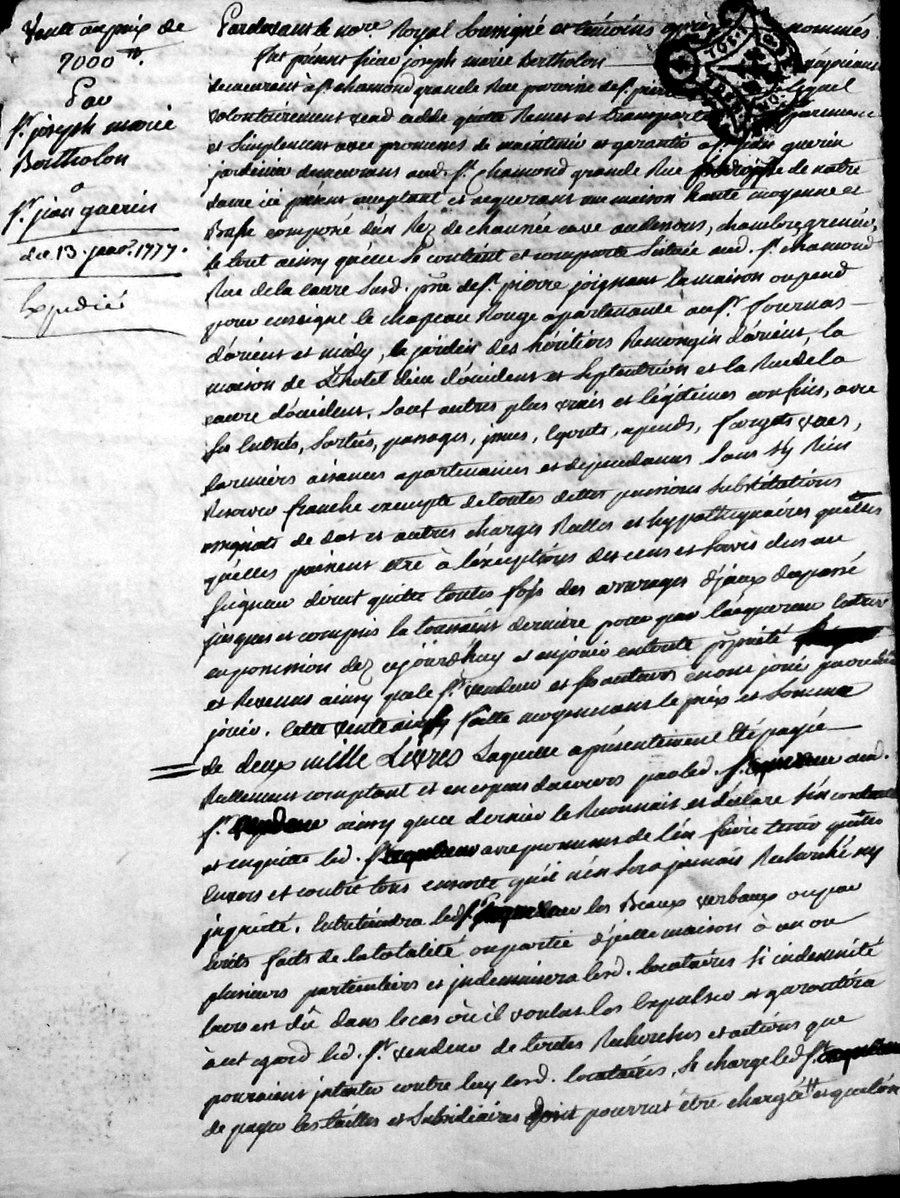 Vente au prix de
2000 tt.
Par
Sr. joseph marie
Bertholon
a
Sr. jean guerin
du 13. janv. 1777.
Expedié
Pardevant le nore. Royal soussigné et témoins nommés
fut présent sieur joseph marie Bertholon
demeurant a St. chamond grande Rue paroisse de St. lequel
volontairement vend cedde quitte Remet et transporte purement
et simplement avec promesses de maintenir et garantir a Sr. jean guerin
jardinier demeurant aud. St. chamond grande Rue paroisse de notre
dame ici présent acceptant et acquerant une maison haute moyenne et
Basse composé d'un Rez de chaussée cave audessous, chambre grenier,
le tout ainsy qu'elle se contient et comporte Située aud. St. chamond
Rue de la cavre Susd. psse de St. pierre joignant la maison ou pend
pour enseigne le chapeau Rouge apartenante au Sr. fournas
d'orient et midy, le jardin des héritiers Remongin d'orient, la
maison de L'hotel dieu d'occident et Septentrion et la Rue de la
cavre d'occident, Sauf autres plus vrais et légitimes confins, avec
Ses Entrés, Sorties, passages, jours, Egouts, apends,
derniers aisances apartenances et dependances Sans S'y Rien
Reserver franche exempte de toutes dettes pensions Substitutions
assignats de dot et autres charges Reelles et hypothéquaires quelles
quelles puissent etre à l'exception des cens et Servis dus au
Seigneur direct quitte toutes fois des arrerages d'jceux du passé
jusques et compris la toussaint derniere pour par l'acquereur Entrer
en possession dez cejourd'huy et en jouir en toute propriété
et Revenus ainsy que le Sr. vendeur et Ses auteurs en ont joui pu ou dû
jouir. Cette vente ainsy faitte moyennant le prix et Somme
de deux mille Livres Laquelle a présentement Eté payée
Réellement comptant et en especes d'acours par led. Sr. aud.
Sr. ainsy que ce dernier le Reconnait et déclare S'en contente
et en quitte led. Sr. avec promesses de l'en faire tenir quitte
Envers et contre tous ensorte qu'il n'en Sera jamais Recherché ny
jnquieté. Entretiendra led. Sr. les Beaux verbaux ou par
Ecrits faits de la totalité ou partie d'jcelle maison à un ou
plusieurs particuliers et jndemnisera lesd. locataires Si indemnité
leurs est dû dans le cas ou il voulut les Expulser et garantira
à cet egard led. Sr. vendeur de toutes Recherches et actions que
pouroient jntenter contre luy lesd. locataires, Se charge led. Sr.
de payer les tailles et Subsidiaires dont pourrat être chargée et qu'elon